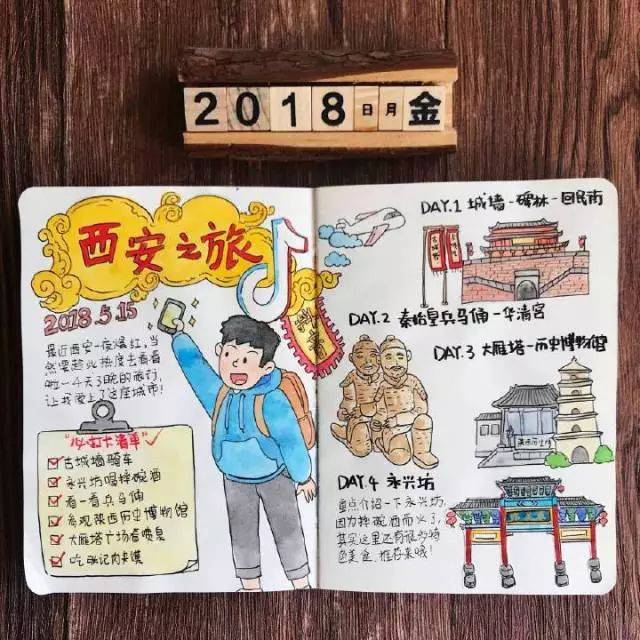 2018日月金
西安之旅
2018.5.15
最近西安一夜爆红,当
然要趁此热度去看看
啦~4天3晚的旅行,
让我爱上了这座城市!
"必打卡清单"
古城墙骑车
永兴坊喝摔碗酒
看一看兵马俑
参观陕西历史博物馆
大雁塔广场看喷泉
吃泡馍肉夹馍
DAY.1 城墙-碑林-回民街
DAY.2 秦始皇兵马俑-华清宫
DAY.3 大雁塔-历史博物馆
DAY.4 永兴坊
重点介绍一下永兴坊,
因为摔碗酒而火了,
其实这里还有很多特
色美食,推荐来哦!